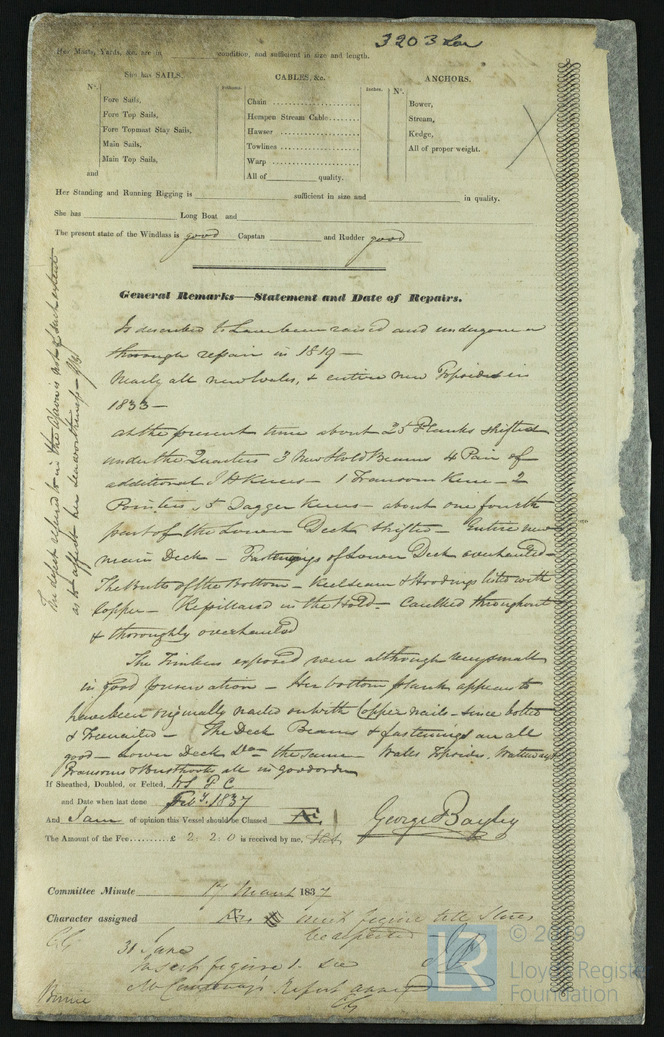 3203 Lon
Her Masts, Yards, &c. are in condition, and sufficient in size and length.
She has SAILS. CABLES, &c. ANCHORS.
N°. Fathoms. Inches. N°.
Fore Sails, Chain Bower,
Fore Top Sails, Hempen Stream Cable Stream,
Fore Topmast Stay Sails, Hawser Kedge,
Main Sails, Towlines All of proper weight.
Main Top Sails, Warp
and All of quality.
Her Standing and Running Rigging is sufficient in size and in quality.
She has Long Boat and
The present state of the Windlass is good Capstan and Rudder good
General Remarks—Statement and Date of Repairs.
Is described to have been raised and undergone a
thorough repair in 1819 —
Nearly all new Wales, & entire new Topsides in
1833 —
At the present time about 25 Planks shifted
under the Quarters 3 New Hold Beams 4 Pair of
additional Knees — 1 Transom Knee — 2
Pointers, 5 Dagger Knees — about one fourth
part of the Lower Deck shifted — Entire new
main Deck — Fastenings of Lower Deck overhauled —
The Butts of the Bottom — Keelson & Hoodings bolted with
Copper — Repillared in the Hold — Caulked throughout
& thoroughly overhauled
The Timbers exposed were although very small
in good preservation — Her bottom plank appears to
have been originally nailed on with Copper nails — since bolted
& Treenailed — The Deck Beams & fastenings are all
good — Lower Deck Do — the same — Wales Topsides, Waterways
Transoms & Breasthooks all in good order
If Sheathed, Doubled, or Felted, F C
and Date when last done Feby. 1837
And I am of opinion this Vessel should be Classed Æ
The Amount of the Fee £ 2 2 0 is received by me,
George Bayley
Committee Minute 17 March 1837
Character assigned Æ figure till Stores
be
31 June
Insert figure 1. see
Report annexed
The defect alluded to in the Apron is not of such extent
as to affect her seaworthiness —
© 2019
LR
Lloyd's Register
Foundation